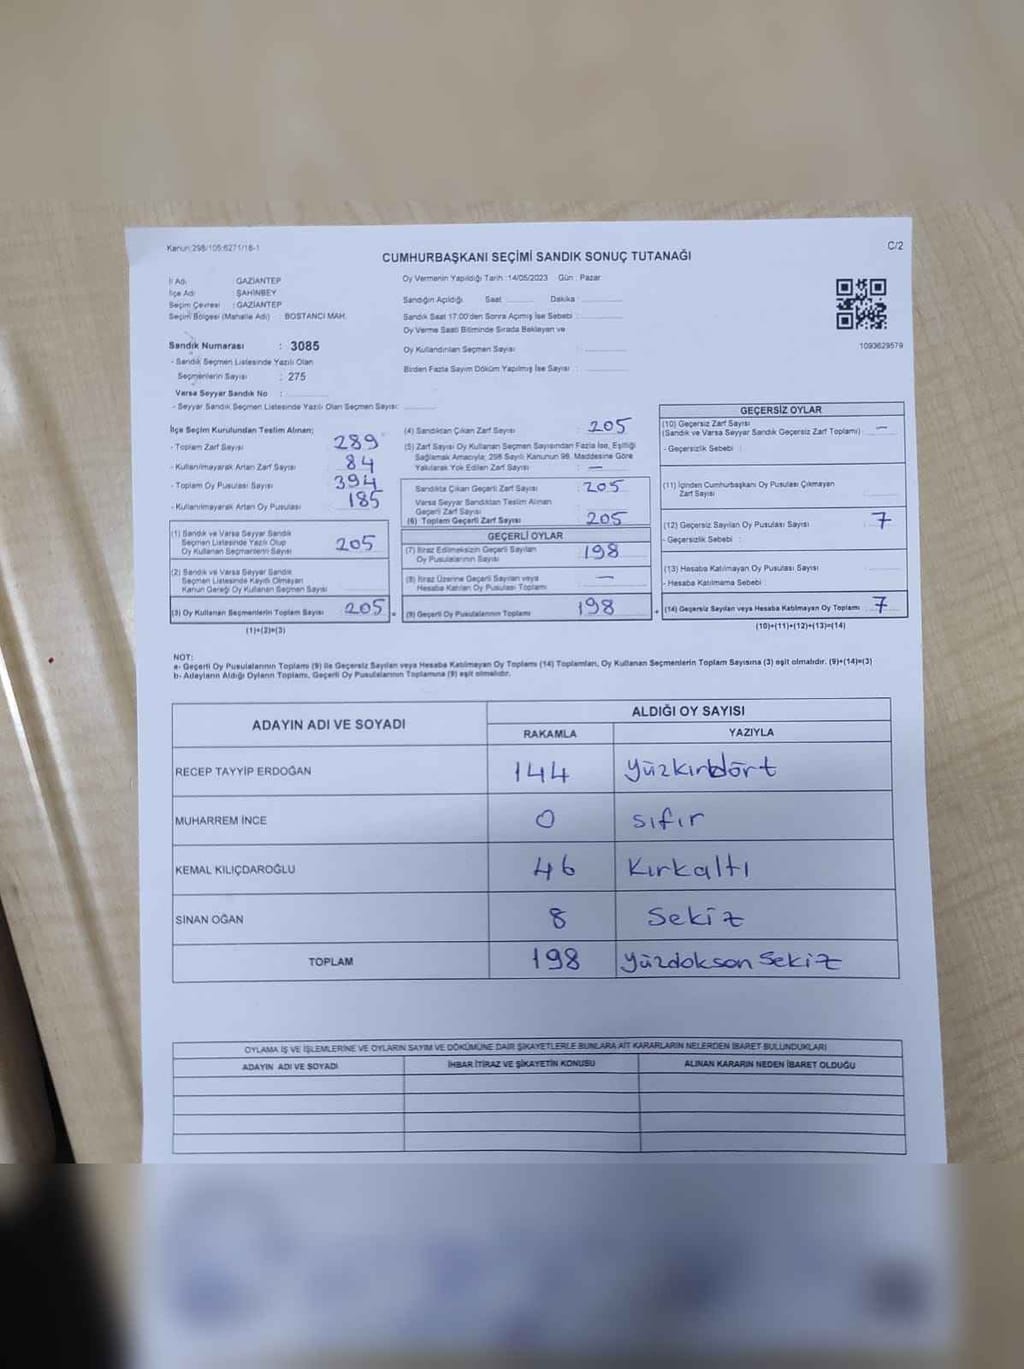 Kanun:298/105:6271/18-1
C/2
CUMHURBAŞKANI SEÇİMİ SANDIK SONUÇ TUTANAĞI
İl Adı GAZİANTEP
İlçe Adı : ŞAHİNBEY
Seçim Çevresi : GAZİANTEP
Seçim Bölgesi (Mahalle Adı) BOSTANCI MAH.
Sandık Numarası : 3085
- Sandık Seçmen Listesinde Yazılı Olan
Seçmenlerin Sayısı : 275
Varsa Seyyar Sandık No :
- Seyyar Sandık Seçmen Listesinde Yazılı Olan Seçmen Sayısı:
Oy Vermenin Yapıldığı Tarih :14/05/2023 Gün : Pazar
Sandığın Açıldığı Saat Dakika :
Sandık Saat 17:00'den Sonra Açımış İse Sebebi :
Oy Verme Saati Bitiminde Sırada Bekleyen ve
Oy Kullandırılan Seçmen Sayısı :
Birden Fazla Sayım Döküm Yapılmış İse Sayısı :
1093629579
İlçe Seçim Kurulundan Teslim Alınan;
- Toplam Zarf Sayısı 289
- Kullanılmayarak Artan Zarf Sayısı 84
- Toplam Oy Pusulası Sayısı 394
- Kullanılmayarak Artan Oy Pusulası 185
(1) Sandık ve Varsa Seyyar Sandık
Seçmen Listesinde Yazılı Olup
Oy Kullanan Seçmenlerin Sayısı 205
(2) Sandık ve Varsa Seyyar Sandık
Seçmen Listesinde Kaydı Olmayan
Kanun Gereği Oy Kullanan Seçmen Sayısı
(3) Oy Kullanan Seçmenlerin Toplam Sayısı 205 =
(1)+(2)=(3)
(4) Sandıktan Çıkan Zarf Sayısı : 205
(5) Zarf Sayısı Oy Kullanan Seçmen Sayısından Fazla İse, Eşitliği
Sağlamak Amacıyla; 298 Sayılı Kanunun 98. Maddesine Göre
Yakılarak Yok Edilen Zarf Sayısı : —
Sandıkta Çıkan Geçerli Zarf Sayısı : 205
Varsa Seyyar Sandıktan Teslim Alınan
Geçerli Zarf Sayısı
(6) Toplam Geçerli Zarf Sayısı 205
GEÇERLİ OYLAR
(7) İtiraz Edilmeksizin Geçerli Sayılan
Oy Pusulalarının Sayısı : 198
(8) İtiraz Üzerine Geçerli Sayılan veya
Hesaba Katılan Oy Pusulası Toplamı —
(9) Geçerli Oy Pusulalarının Toplamı 198 +
GEÇERSİZ OYLAR
(10) Geçersiz Zarf Sayısı
(Sandık ve Varsa Seyyar Sandık Geçersiz Zarf Toplamı) : —
- Geçersizlik Sebebi :
(11) İçinden Cumhurbaşkanı Oy Pusulası Çıkmayan
Zarf Sayısı
(12) Geçersiz Sayılan Oy Pusulası Sayısı : 7
- Geçersizlik Sebebi :
(13) Hesaba Katılmayan Oy Pusulası Sayısı :
- Hesaba Katılmama Sebebi :
(14) Geçersiz Sayılan veya Hesaba Katılmayan Oy Toplamı : 7
(10)+(11)+(12)+(13)=(14)
NOT:
a- Geçerli Oy Pusulalarının Toplamı (9) ile Geçersiz Sayılan veya Hesaba Katılmayan Oy Toplamı (14) Toplamları, Oy Kullanan Seçmenlerin Toplam Sayısına (3) eşit olmalıdır. (9)+(14)=(3)
b- Adayların Aldığı Oyların Toplamı, Geçerli Oy Pusulalarının Toplamına (9) eşit olmalıdır.
ADAYIN ADI VE SOYADI ALDIĞI OY SAYISI
RAKAMLA YAZIYLA
RECEP TAYYİP ERDOĞAN 144 yüzkırkdört
MUHARREM İNCE 0 sıfır
KEMAL KILIÇDAROĞLU 46 Kırkaltı
SİNAN OĞAN 8 Sekiz
TOPLAM 198 yüzdoksan sekiz
OYLAMA İŞ VE İŞLEMLERİNE VE OYLARIN SAYIM VE DÖKÜMÜNE DAİR ŞİKAYETLERLE BUNLARA AİT KARARLARIN NELERDEN İBARET BULUNDUKLARI
ADAYIN ADI VE SOYADI İHBAR İTİRAZ VE ŞİKAYETİN KONUSU ALINAN KARARIN NEDEN İBARET OLDUĞU